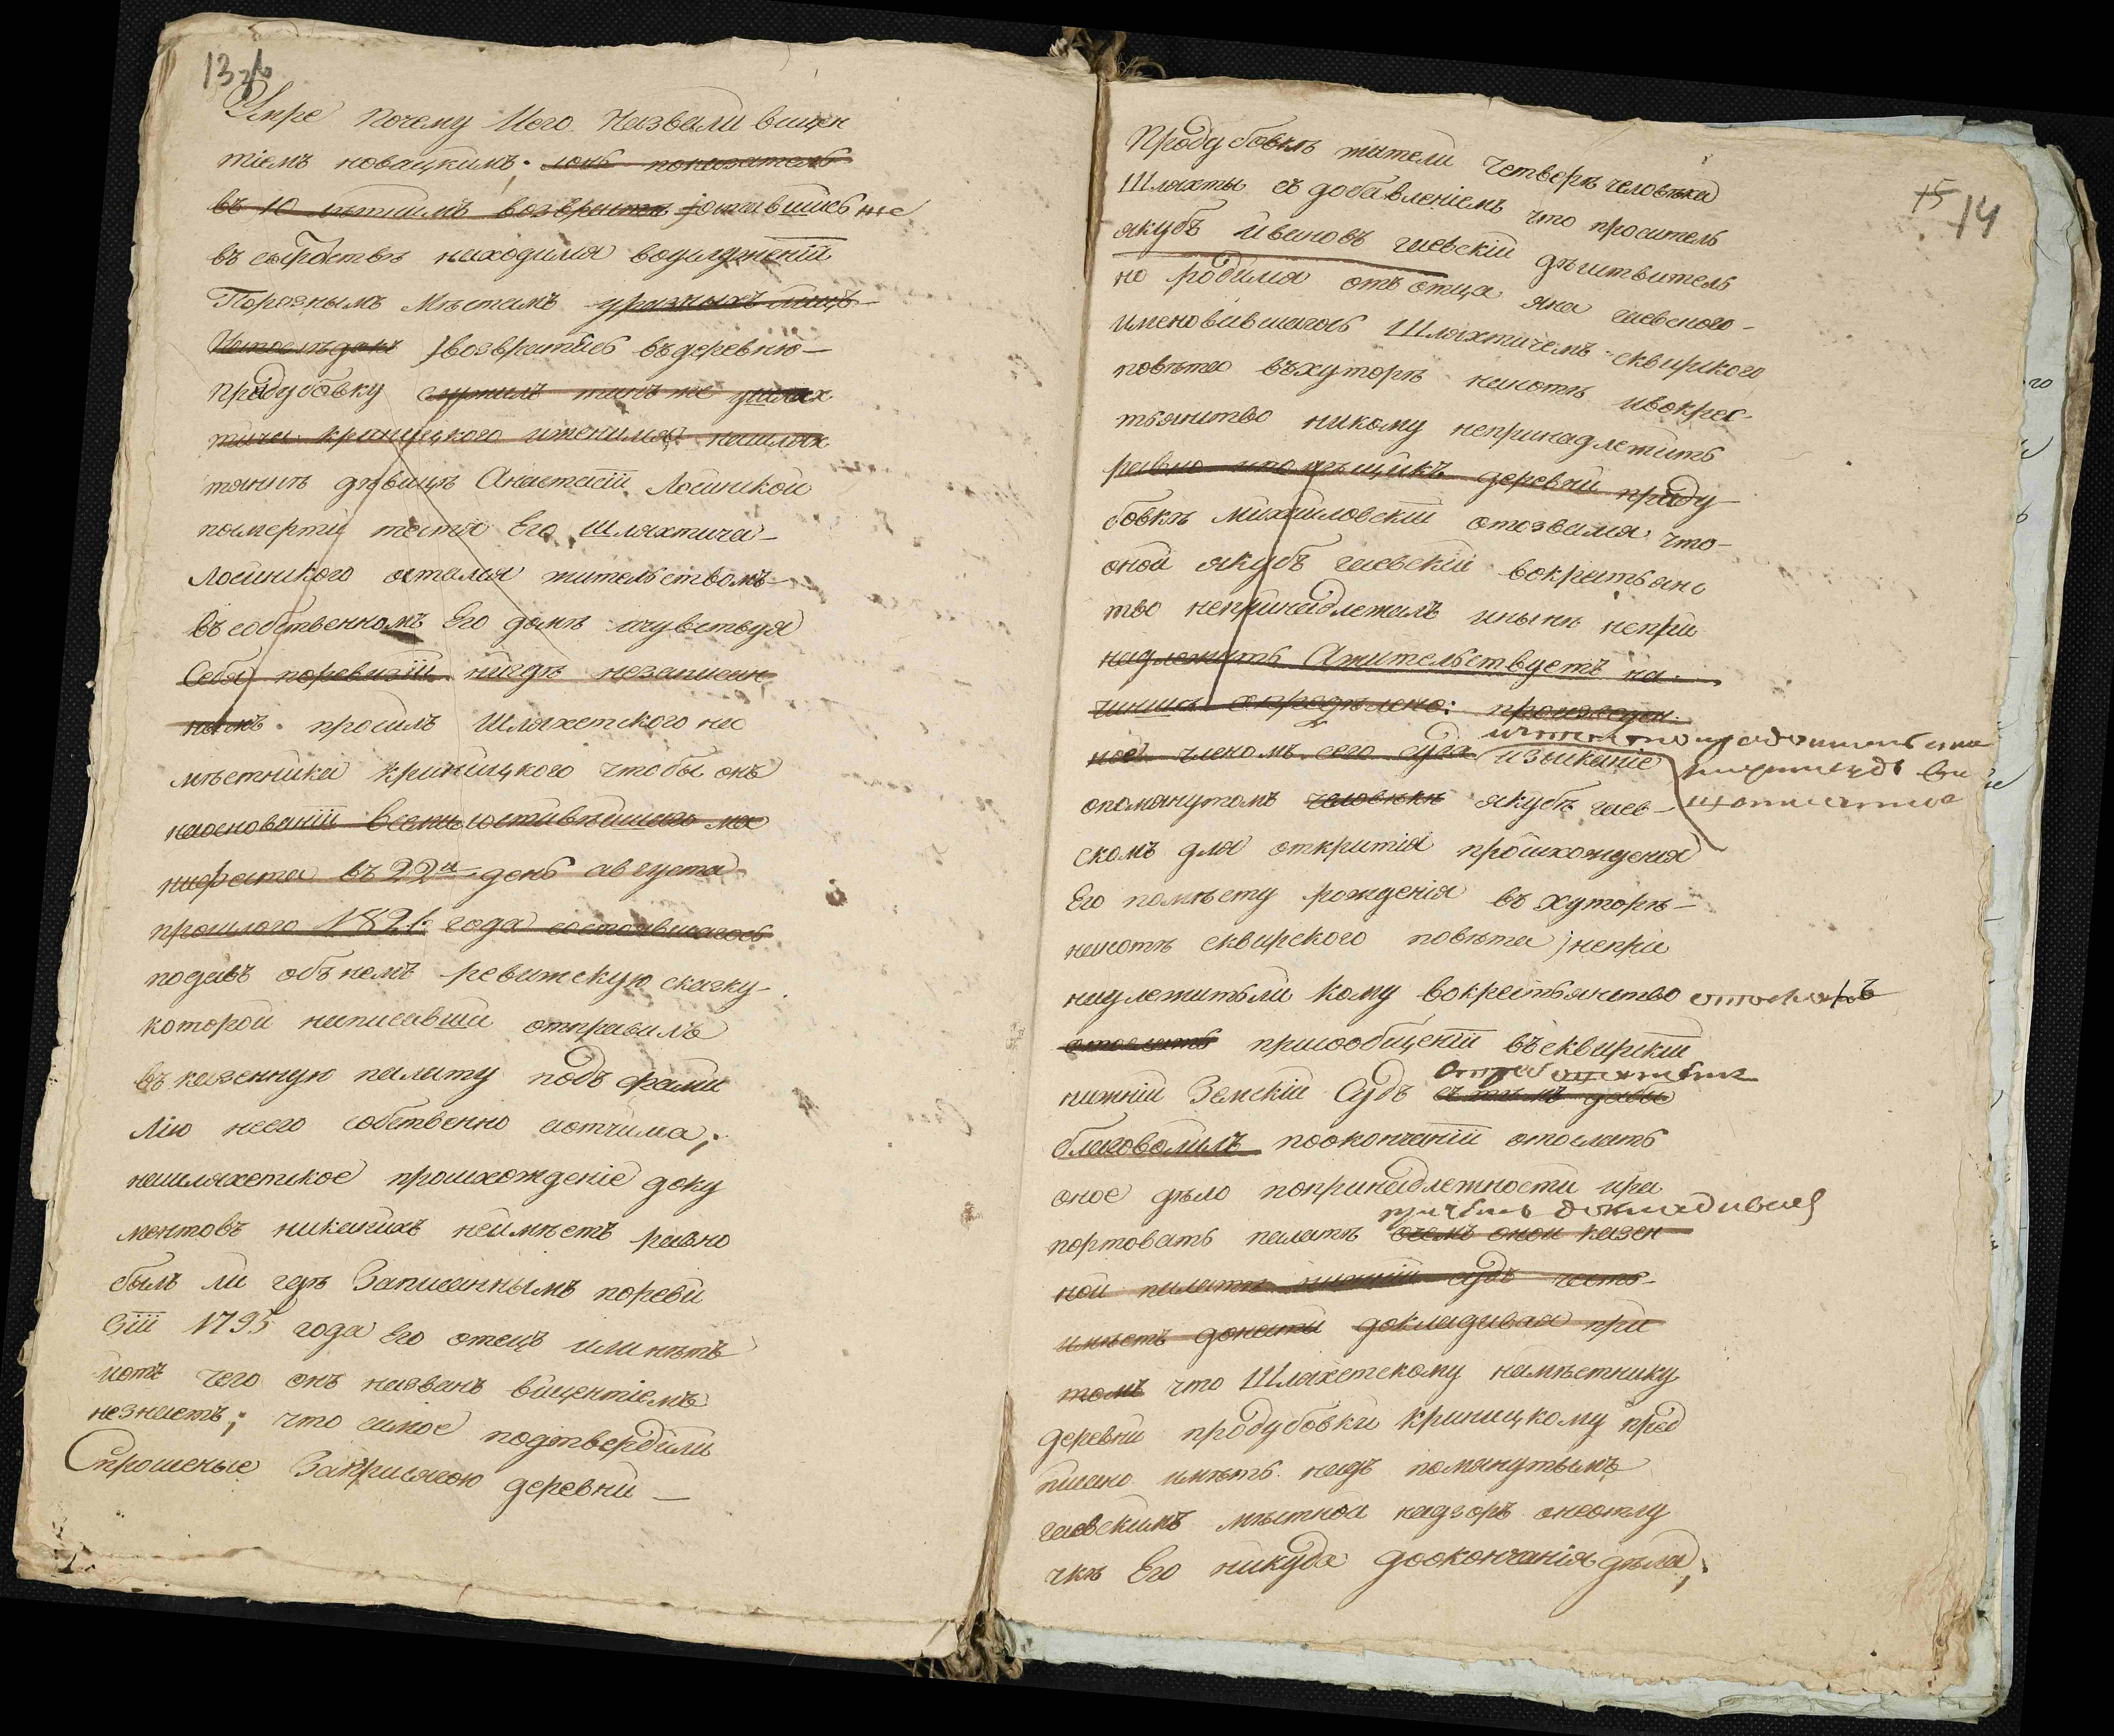 13
Умре почему Иего. Назвали вицен
тіемъ новацкимъ.
въ 10 лѣтнимъ возврасте оставшись не
въ сыротствѣ находился воуслуженіи
Поразнымъ мѣстамъ уразныхъ лицъ
возвратясь въдеревню
придубовку служилъ тамъ же ушлях
тича криницкого иженился нашлях
тянкѣ дѣвицѣ Анастасіи Лосинской
посмерти тестя Его Шляхтича
Лосинского остался жительствомъ
въсобственномъ Его домѣ ичувствуя
Себя поревизіи нигдѣ незаписан
нымъ просилъ Шляхетского на
мѣстника криницкого чтобы онъ
наоснованіи всемилостивѣйшаго ма
нифеста въ 22й день августа
прошлого 1821 года состоявшагось
подалъ объ немъ ревизскую сказку
которой написавши отправилъ
въ казенную палату подъ фами
лію неего собственно аотчима;
нашляхетское происхожденіе доку
ментовъ никакихъ неимѣетъ равно
былъ ли гдѣ Записаннымъ пореви
зіи 1795 года Его отецъ или нѣтъ
иотъ чего онъ названъ вицентіемъ
незнаетъ; что самое подтвердили
Спрошеные Заприсягою деревни
15 14
Придубовки жители четверо человѣка
Шляхты съ добавленіемъ что проситель
якубъ Ивановъ гаевскій дѣйствитель
но родился отъ отца яна гаевского
именовавшагось Шляхтичемъ сквирского
повѣта въхуторѣ ивокрес
тьянство никому непринадлежитъ
равно деревни приду
бовки михайловскій отозвался что
оной якубъ гаевскій вокрестьянс
тво непринадлежалъ инынѣ непри
надлежитъ Ажительствуетъ на
чинше опредѣлено: произведен
ное членомъ сего суда изысканіе
опомянутомъ человѣкѣ якубѣ гаев
скомъ для открытія происхожденія
Его помѣсту рожденія въ хуторѣ
сквирского повѣта инепри
надлежитъли кому вокрестьянство
отослать присообщеніи въсквирскій
нижній Земскій Судъ съ тѣмъ дабы
благоволилъ поокончаніи отослать
оное дѣло попринадлежности ира
портовать палатѣ очемъ оной казен
ной палатѣ нижній судъ честь
имѣетъ донести докладывая при
томъ что Шляхетскому намѣстнику
деревни придубовки криницкому пред
писано имѣть надъ помянутымъ
гаевскимъ мѣстной надзоръ онеотлу
чкѣ Его никуда доокончанія дѣла;